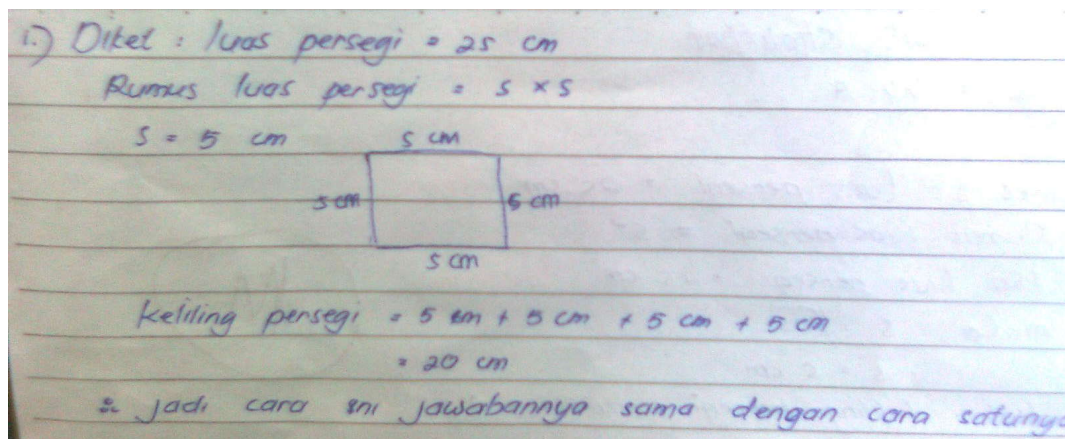 1.) Diket : luas persegi = 25 cm
Rumus luas persegi = s x s
s = 5 cm
5 cm
5 cm
5 cm
5 cm
Keliling persegi = 5 cm + 5 cm + 5 cm + 5 cm
= 20 cm
∴ jadi cara ini jawabannya sama dengan cara satunya